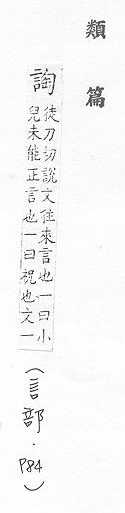 類篇
詾徒刀切說文徃來言也一曰小
兒未能正言也一曰祝也文一
(言部．P84)